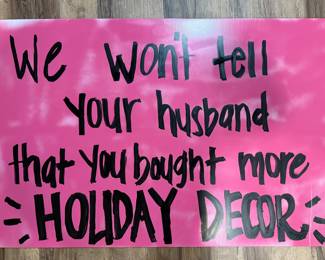 We won't tell
your husband
that you bought more
HOLIDAY DECOR